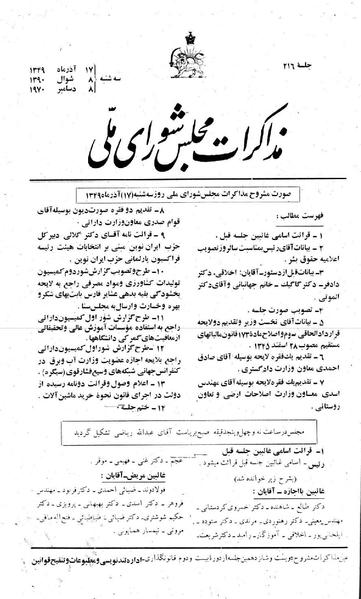 جلسه ۲۱۶
سه شنبه
۱۷ آذرماه ۱۳۴۹
۸ شوال ۱۳۹۰
۸ دسامبر ۱۹۷۰
مذاکرات مجلس شورای ملی
صورت مشروح مذاکرات مجلس شورای ملی روز سه شنبه (۱۷) آذرماه ۱۳۴۹
فهرست مطالب :
۱ - قرائت اسامی غائبین جلسه قبل .
۲ - بیانات آقای رئیس بمناسبت سالروز تصویب
اعلامیه حقوق بشر .
۳ - بیانات قبل از دستور - آقایان : اخلاقی، دکتر
دادفر - دکتر کاگیک - خانم جهانبانی و آقای دکتر
الموتی .
۴ - تصویب صورت جلسه .
۵ - بیانات آقای نخست وزیر و تقدیم دو لایحه
قرارداد الحاقی سوم و اصلاح ماده ۱۷۳ قانون مالیاتهای
مستقیم مصوب ۲۸ اسفند ۱۳۴۵ .
۶ - تقدیم یك فقره لایحه بوسیله آقای صادق
احمدی معاون وزارت دادگستری .
۷ - تقدیم یك فقره لایحه بوسیله آقای مهندس
اسدی معاون وزارت اصلاحات ارضی و تعاون
روستائی .
۸ - تقدیم دو فقره صورت دیون بوسیله آقای
قوام صدری معاون وزارت دارائی .
۹ - قرائت نامه آقای دکتر کلالی دبیر کل
حزب ایران نوین مبنی بر انتخابات هیئت رئیسه
فراکسیون پارلمانی حزب ایران نوین .
۱۰ - طرح و تصویب گزارش شور دوم کمیسیون
تولیدات کشاورزی و مواد مصرفی راجع به لایحه
بخشودگی بقیه بدهی عشایر فارس بابت بهای شکر و
بهره و خسارت وارسال به مجلس سنا .
۱۱ - طرح گزارش شور اول کمیسیون دارائی
راجع به استفاده مؤسسات آموزش عالی و تحقیقاتی
از معافیت های گمرکی دانشگاهها .
۱۲ - طرح گزارش شور اول کمیسیون دارائی
راجع بلایحه اجازه عضویت وزارت آب و برق در
کنفرانس جهانی شبکه های وسیع فشار قوی (سیگره) .
۱۳ - اعلام وصول و قرائت دو نامه رسیده از
دولت در اجرای قانون نحوه خرید ماشین آلات .
۱۴ - ختم جلسه .
مجلس در ساعت نه و چهل و پنجدقیقه صبح بریاست آقای عبدالله ریاضی تشکیل گردید
۱ - قرائت اسامی غائبین جلسه قبل
رئیس - اسامی غائبین جلسه قبل قرائت میشود .
(بشرح زیر خوانده شد)
غائبین با اجازه - آقایان :
دکتر طالع - شاهنده - دکتر خسروی کردستانی -
مهندس معینی - دکتر رهنوردی - مرندی - دکتر ستوده -
ایلخانی پور - اخلاقی - آموزگار - رامبد - دکتر شریعت -
عجم - دکتر غنی - فهیمی - موقر .
غائبین مریض - آقایان :
فولادوند - ضیائی احمدی - دکتر فربود - مهندس
فروهر - دکتر اسدی - دکتر بهبهانی - پرویزی - دکتر
حکیم شوشتری - دکتر ضیائی - ضیاضیائی - فتح اله مافی -
مروتی - تیمسار همایونی .
عین مذاکرات مشروح دویست و شانزدهمین جلسه از دوره بیست و دوم قانونگذاری - اداره تندنویسی و مطبوعات و تنقیح قوانین